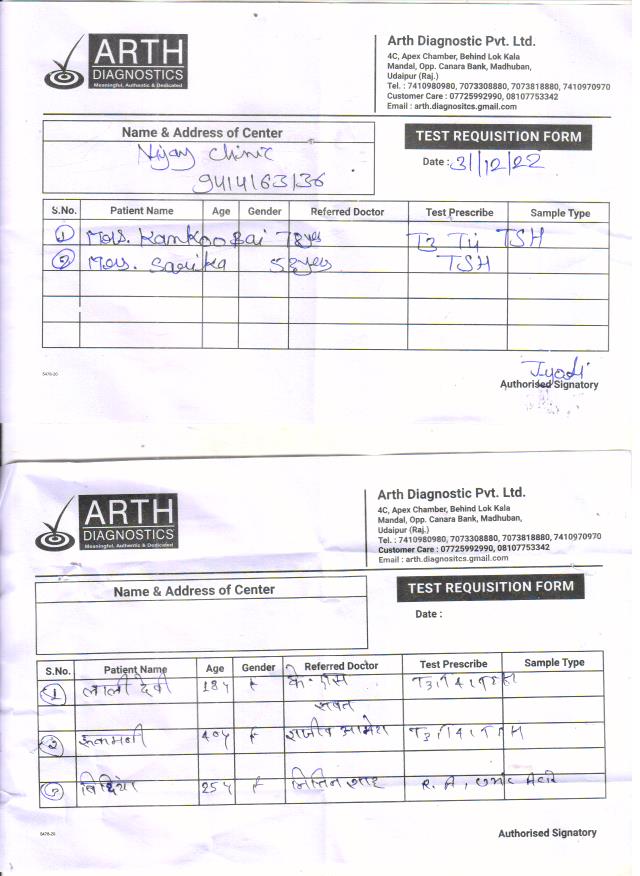 ARTH
DIAGNOSTICS
Meaningful, Authentic & Dedicated
Arth Diagnostic Pvt. Ltd.
4C, Apex Chamber, Behind Lok Kala
Mandal, Opp. Canara Bank, Madhuban,
Udaipur (Raj.)
Tel. : 7410980980, 7073308880, 7073818880, 7410970970
Customer Care : 07725992990, 08107753342
Email : arth.diagnositcs.gmail.com
Name & Address of Center
Vijay Clinic
9414163136
TEST REQUISITION FORM
Date : 31/12/22
S.No. Patient Name Age Gender Referred Doctor Test Prescribe Sample Type
1 Mrs. Kankoo Bai 78yrs T3 T4 TSH
2 Mrs. Sarika 58yrs TSH
Jyodi
Authorised Signatory
5478-20
ARTH
DIAGNOSTICS
Meaningful, Authentic & Dedicated
Arth Diagnostic Pvt. Ltd.
4C, Apex Chamber, Behind Lok Kala
Mandal, Opp. Canara Bank, Madhuban,
Udaipur (Raj.)
Tel. : 7410980980, 7073308880, 7073818880, 7410970970
Customer Care : 07725992990, 08107753342
Email : arth.diagnositcs.gmail.com
Name & Address of Center
TEST REQUISITION FORM
Date :
S.No. Patient Name Age Gender Referred Doctor Test Prescribe Sample Type
1 लाली देवी 18y F के. एस
2 रुकमनी 40y F राजीव आमेटा
3 25y F नितिन शाह R.A, Uric Acid
5478-20
Authorised Signatory